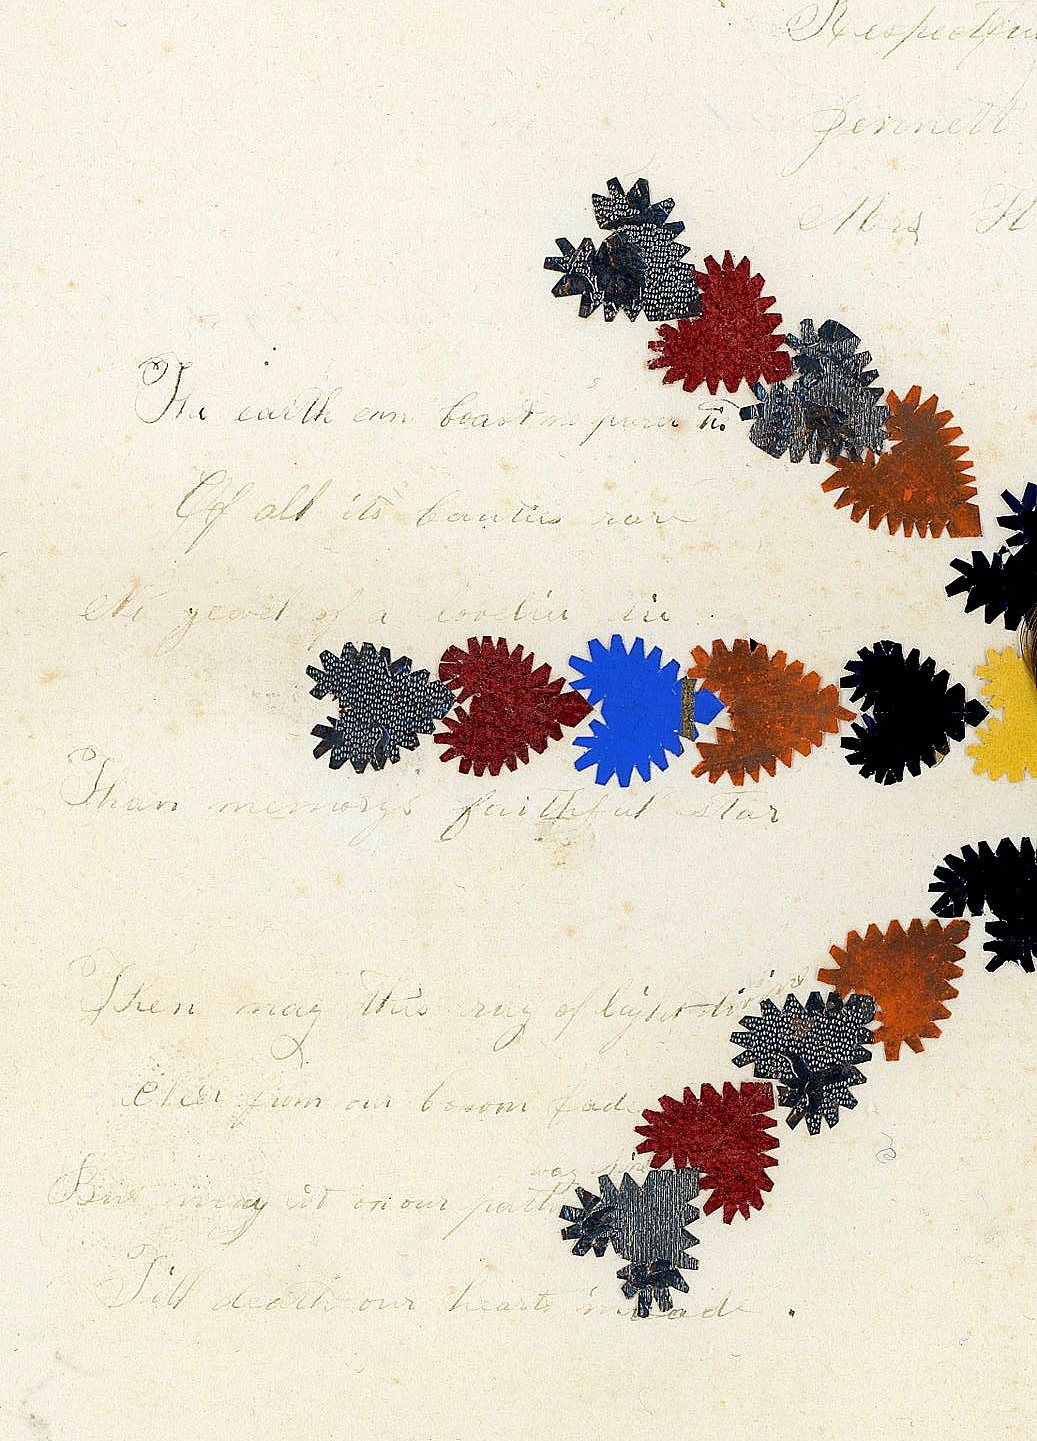 Respectfu
Jennett
Mrs H
The earth can boast no purer tie
Of all its beauties rare
No jewel of a lovelier
Than memorys faithful star
Then may this ray of light divine
Ever from our bosom fade
But may it on our path
way
Till death our hearts